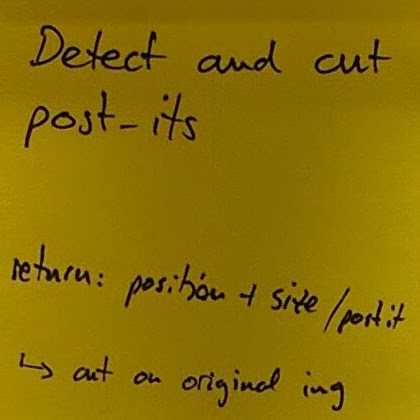 Detect and cut
post-its
return: position + size / postit
↳ cut on original img